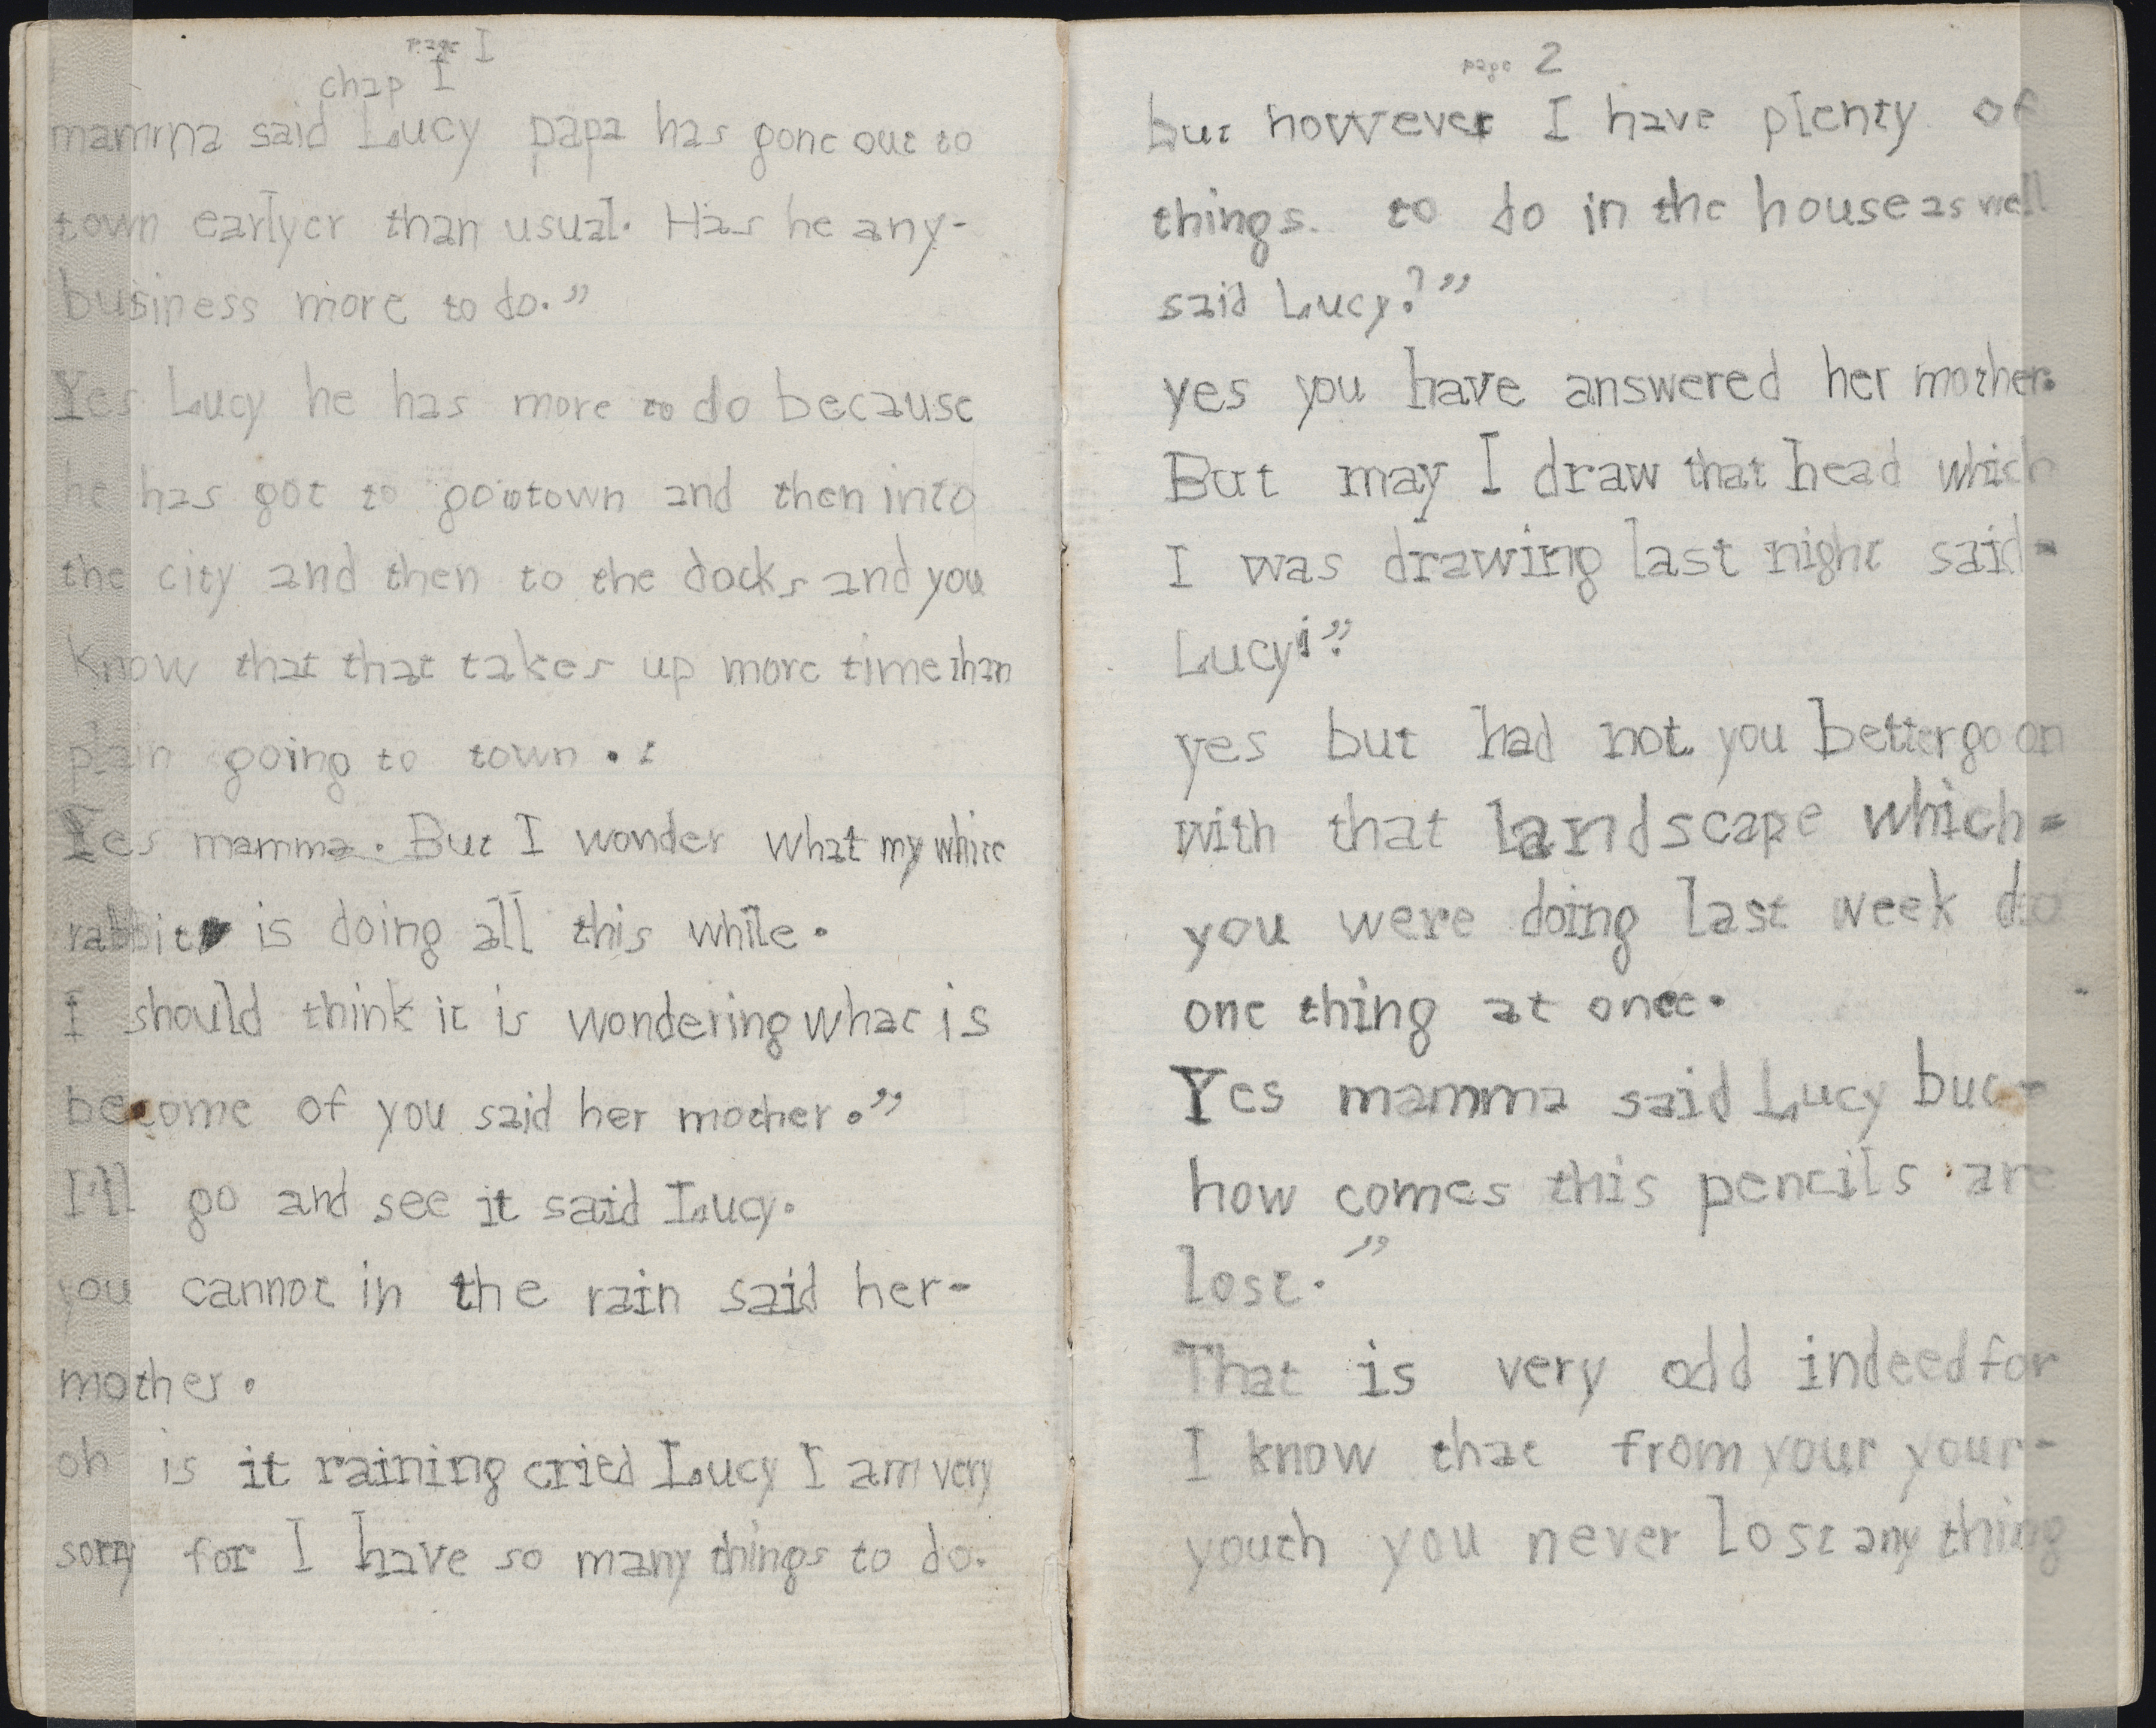 page I
chap I
mamma said Lucy papa has gone out to
town earlyer than usual. Has he any-
business more to do."
Yes Lucy he has more to do because
he has got to go to town and then into
the city and then to the docks and you
know that that takes up more time than
plain going to town.
Yes mamma. But I wonder what my white
rabbit is doing all this while.
I should think it is wondering what is
become of you said her mother."
I'll go and see it said Lucy.
you cannot in the rain said her-
mother.
oh is it raining cried Lucy I am very
sorry for I have so many things to do.
page 2
but however I have plenty of
things. to do in the house as well
said Lucy?"
yes you have answered her mother.
But may I draw that head which
I was drawing last night said-
Lucy"
yes but had not you better go on
with that landscape which-
you were doing last week do
one thing at once.
Yes mamma said Lucy but-
how comes this pencils are
lost."
That is very odd indeed for
I know that from your your-
youth you never lost any thing